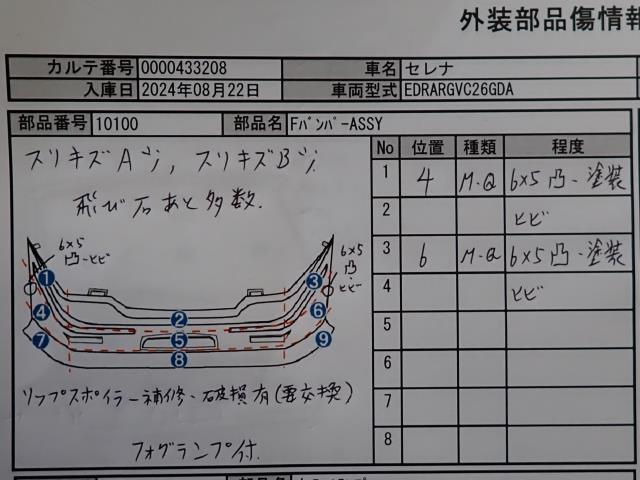 外装部品傷情報
カルテ番号 0000433208 車名 セレナ
入庫日 2024年08月22日 車両型式 EDRARGVC26GDA
部品番号 10100 部品名 FﾊﾞﾝﾊﾟｰASSY
スリキズA少, スリキズB少
飛び石あと多数.
6×5
凸-ヒビ
6×5
凸
-
ヒビ
1 2 3
4 5 6
7 8 9
リップスポイラー補修・破損有(要交換)
フォグランプ付.
No 位置 種類 程度
1 4 M-Q 6×5凸-塗装
2 ヒビ
3 6 M-Q 6×5凸-塗装
4 ヒビ
5
6
7
8